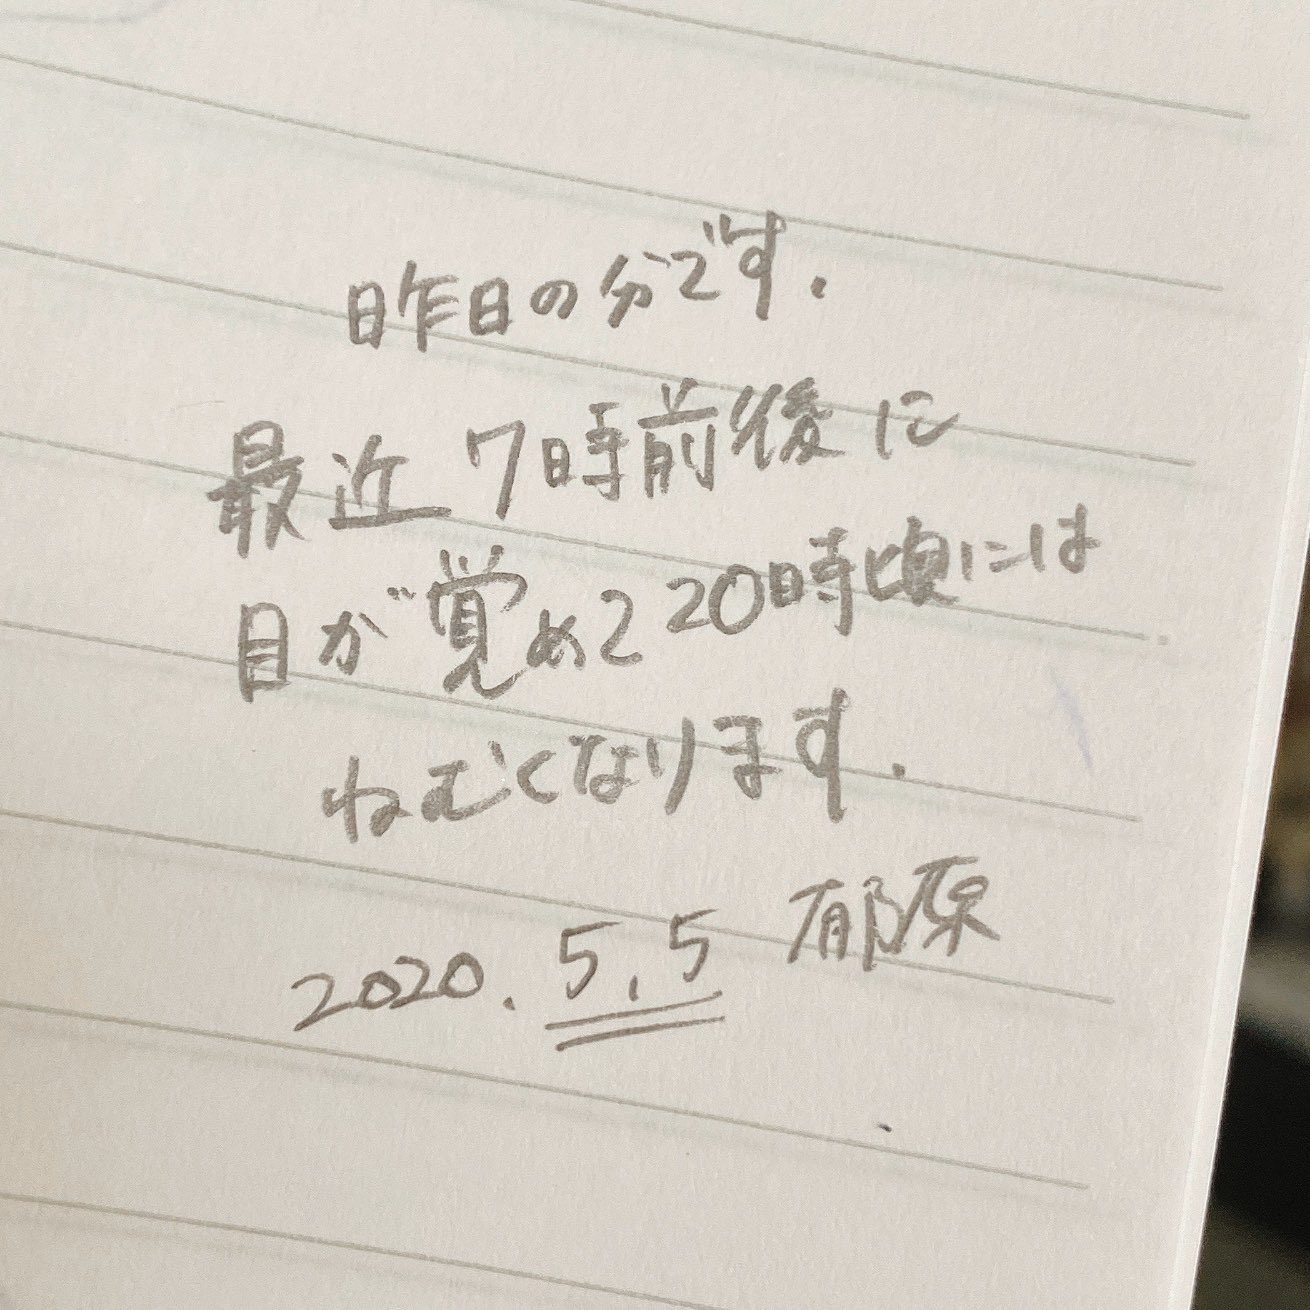 昨日の分です.
最近 7時前後に
目が覚めて20時頃には
ねむくなります.
2020. 5.5 郁原